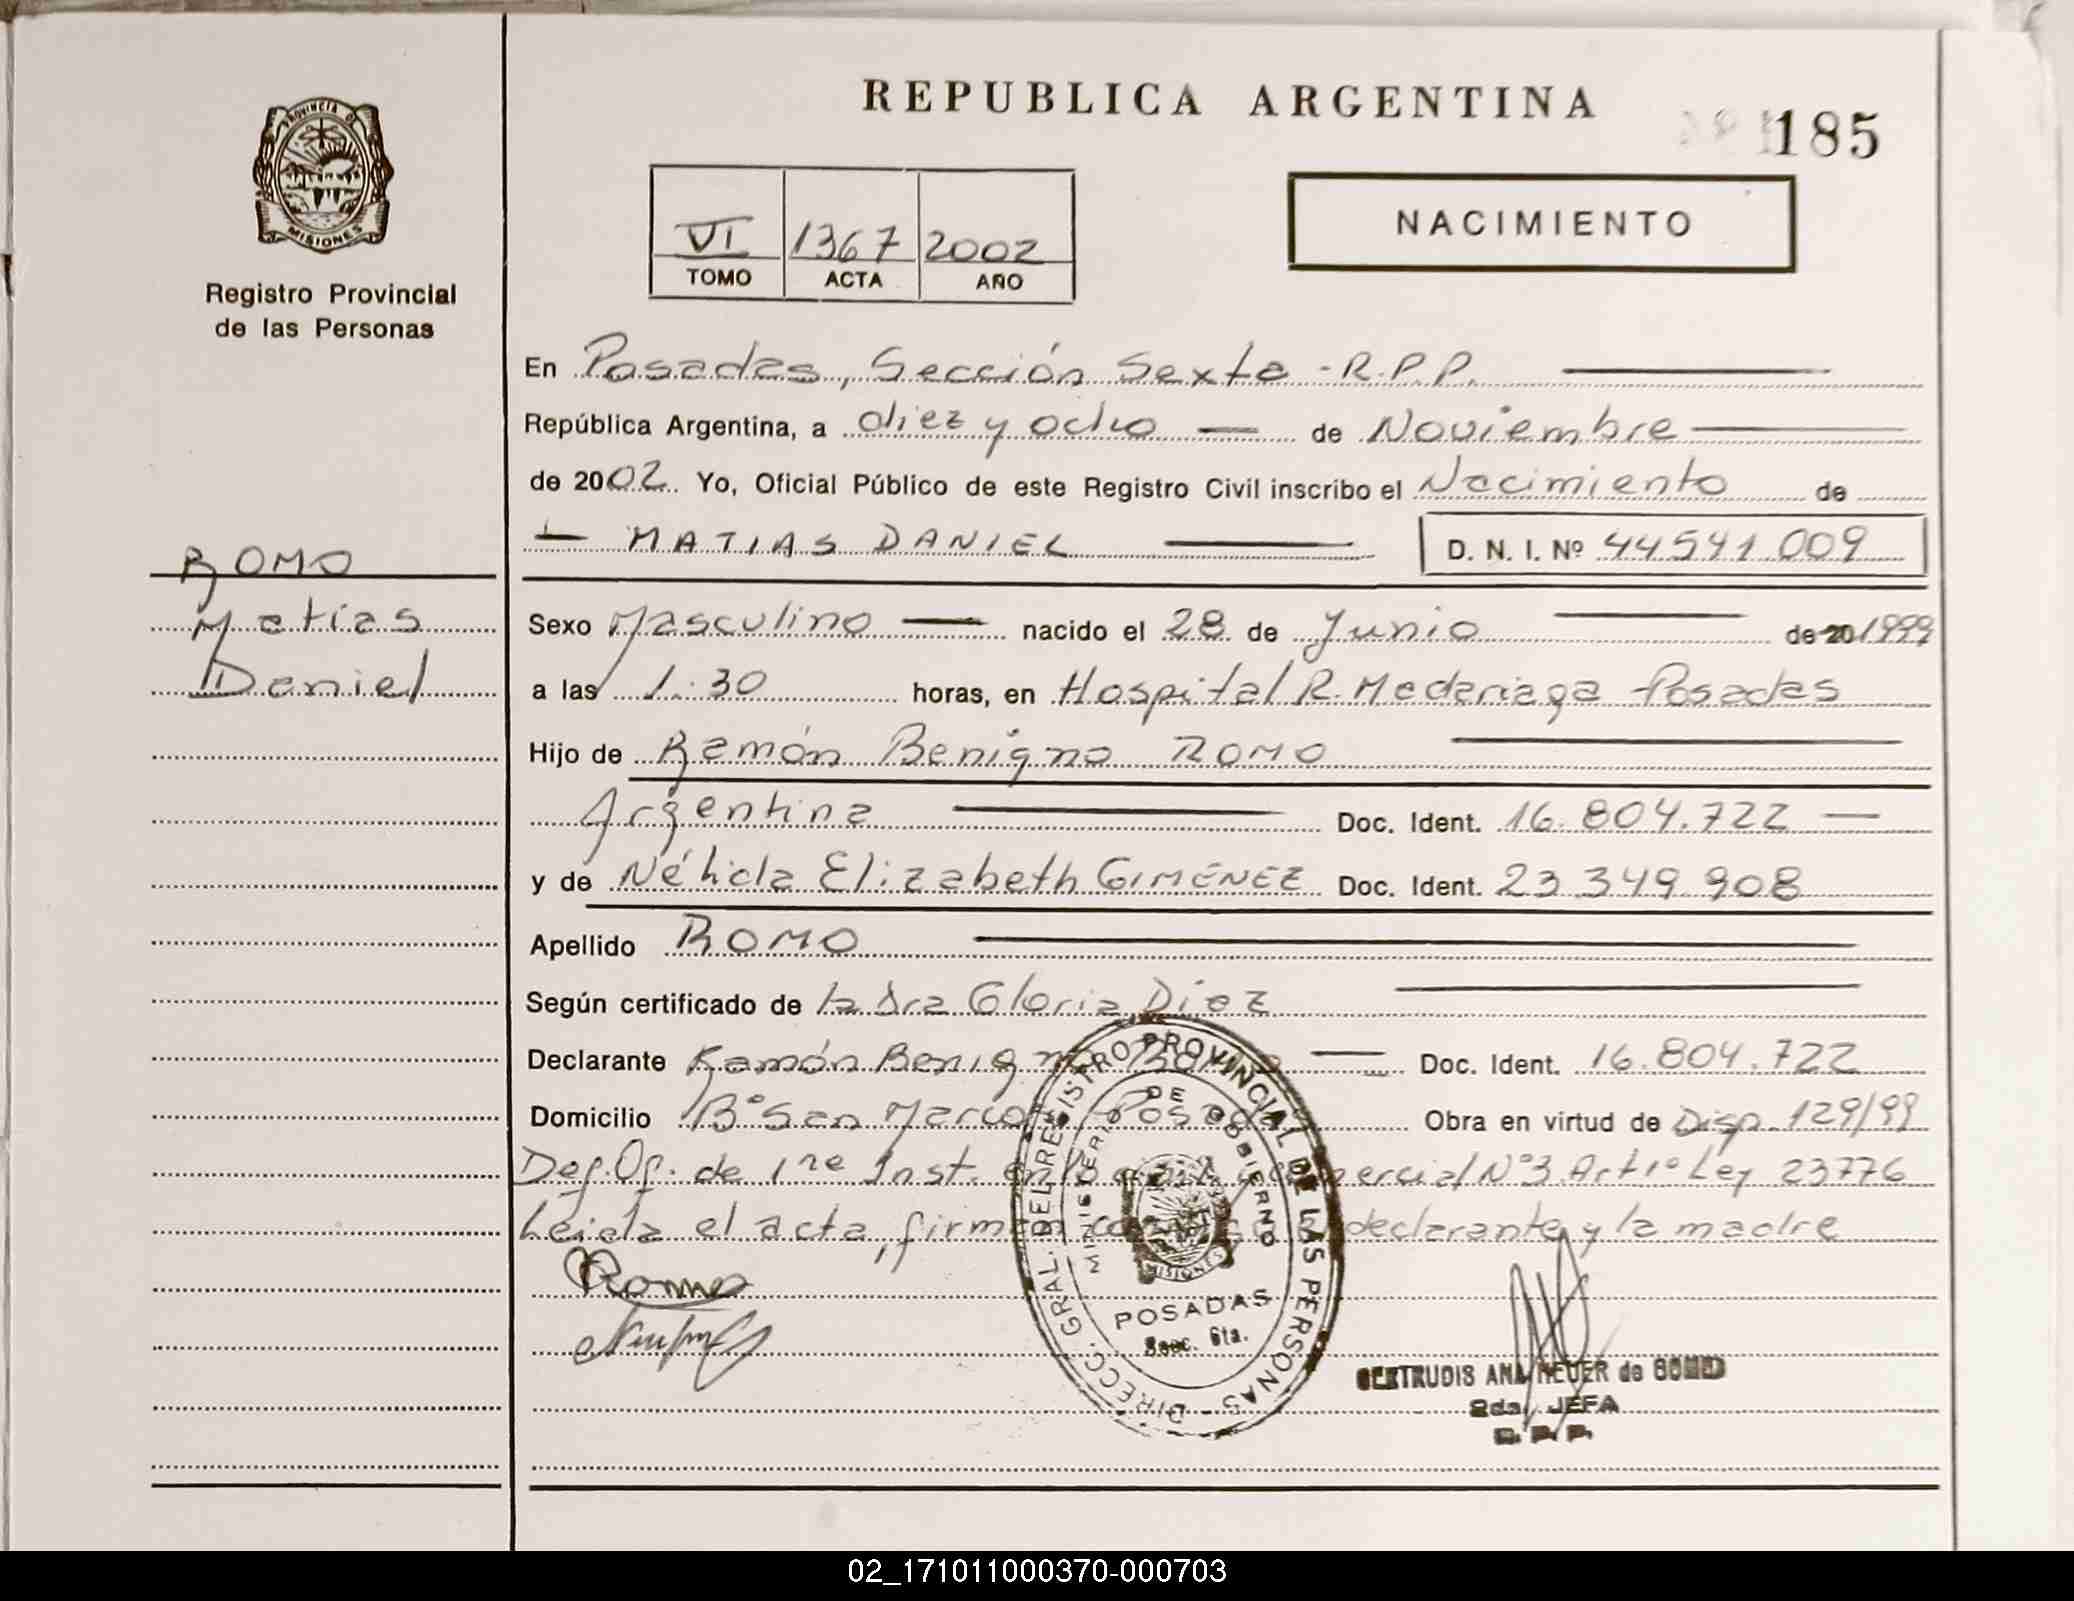 REPUBLICA ARGENTINA
185
PROVINCIA DE
MISIONES
Registro Provincial
de las Personas
NACIMIENTO
VI 1367 2002
TOMO ACTA AÑO
ROMO
Matías
Daniel
En Posadas, Sección Sexta - R.P.P.
República Argentina, a diez y ocho de Noviembre
de 2002. Yo, Oficial Público de este Registro Civil inscribo el Nacimiento de
MATIAS DANIEL D. N. I. Nº 44541009
Sexo Masculino nacido el 28 de Junio de 20 1999
a las 1:30 horas, en Hospital R. Madariaga - Posadas
Hijo de Ramón Benigno ROMO
Argentina Doc. Ident. 16.804.722
y de Nélida Elizabeth GIMÉNEZ Doc. Ident. 23.349.908
Apellido ROMO
Según certificado de la Dra Gloria Diez
Declarante Ramón Benigno Doc. Ident. 16.804.722
Domicilio Bº San Marcos Posadas Obra en virtud de Disp. 129/99
Def. Of. de 1ra Inst. en lo Comercial Nº3 Art 1º Ley 23776
Leida el acta, firman el declarante y la madre
Romo
DIRECC. GRAL. DEL REGISTRO PROVINCIAL DE LAS PERSONAS
MINISTERIO DE GOBIERNO
MISIONES
POSADAS
Secc. 6ta.
GERTRUDIS ANA HEUER de
2da. JEFA
R. P. P.
02_171011000370-000703